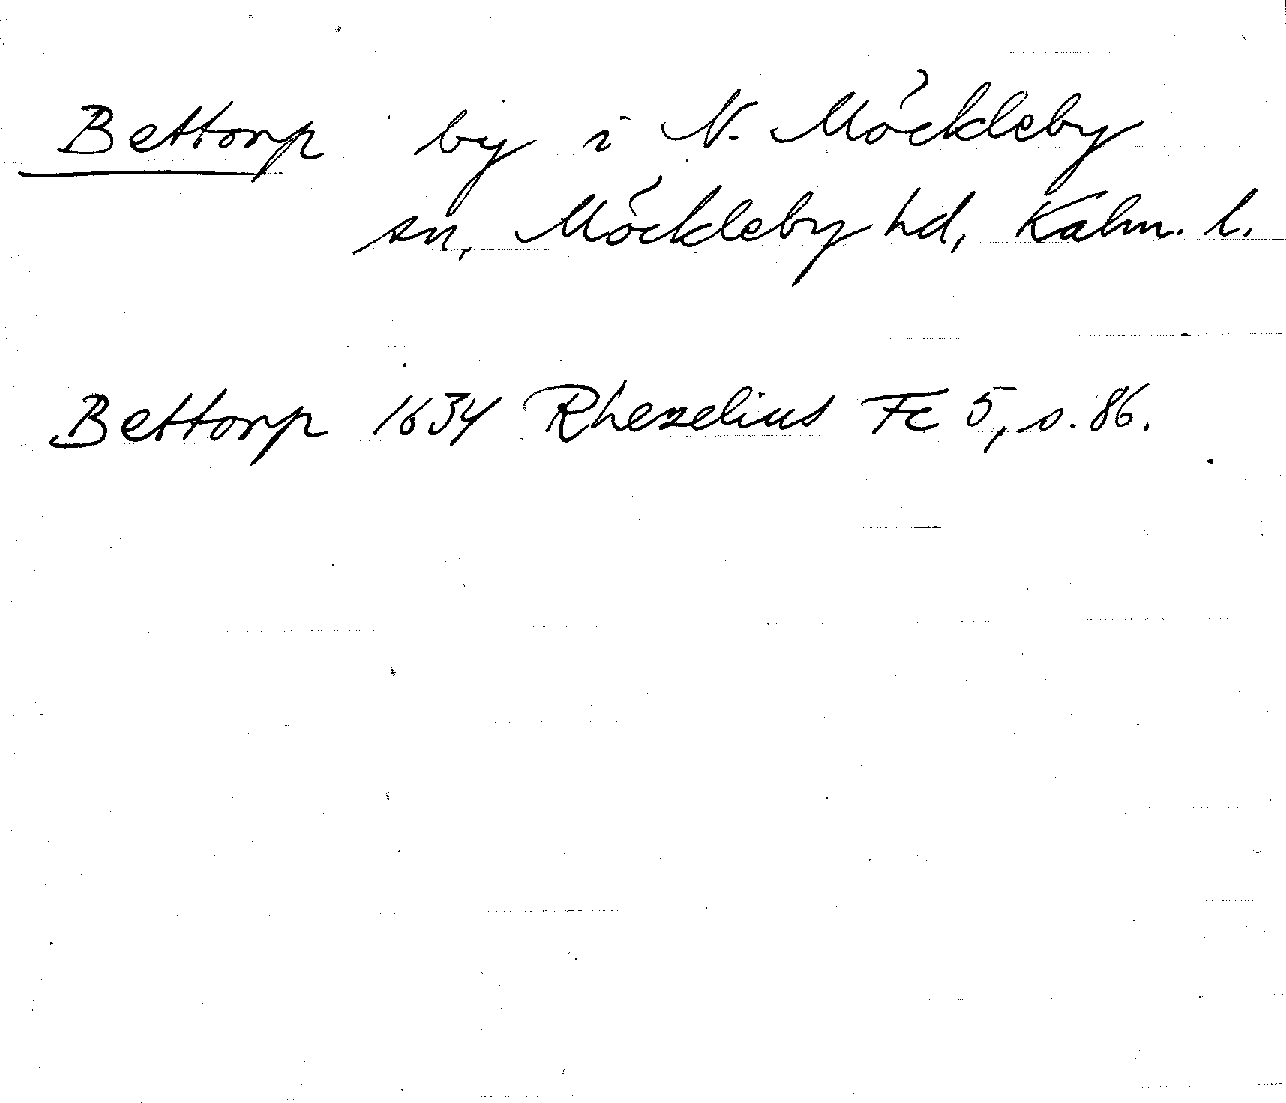 Bettorp by i N. Möckleby
sn, Möckleby hd, Kalm. l.
Bettorp 1634 Rhezelius Fc 5, s. 86.